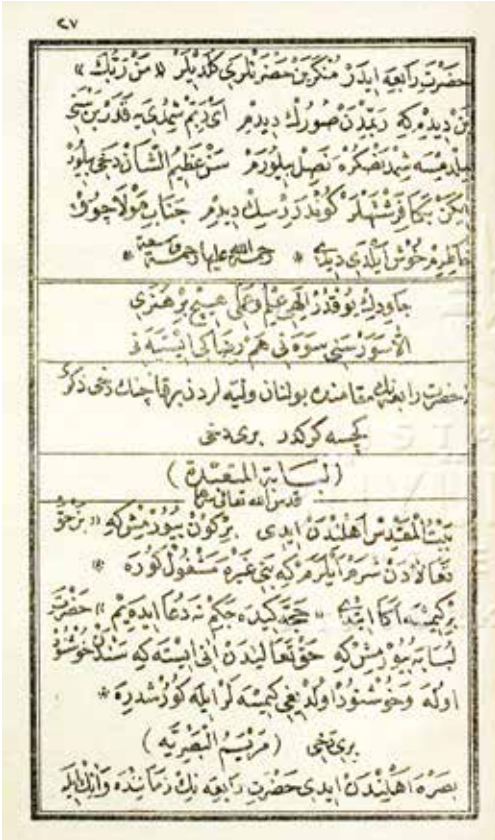 ٢٧
حضرت رابعه ايدر منكرين حضرتلرى كلديلر « من ربك »
بن ديدمكه ربمدن صورك ديدم اى ربم شمدى يه قدر بن سنى
بيلدميسه شمدنصكره نصل بيلورم سن عظيم الشان دخى بيلور
ايكن بكا فرشتهلر كوندردرسك ديدم جناب مولا چوق
خاطرم خوش ايلدى ديدى * رحمة الله عليها رحمة واسعة *
جاويدك يوقدر الهى علم وعملى هيچ بر هنرى
الا سور سنى سوه نى هم رضاكى ايسته نى
حضرت رابعه نك مقامنده بولنان وليه لردن برقاچنك دخى ذكرى
كچسه كركدر برى دخى
( لبابة المتعبدة )
قدس الله تعالى سرها
بيت المقدس اهلندن ايدى بركون بيورمش كه « بن حق
تعالادن شرم ايلرم كه بنى غيره مشغول كوره *
بر كيمسه اكا ايتدى « حجه كيده جكم نه دعا ايده يم » حضرت
لبابه بيورمش كه حق تعاليدن انى ايسته كه سندن خوشنود
اوله وخوشنود اولديغى كيمسه لر ايله كورشدره *
برى دخى ( مريم البصريه )
بصره اهلندن ايدى حضرت رابعه نك زماننده وانك ايله